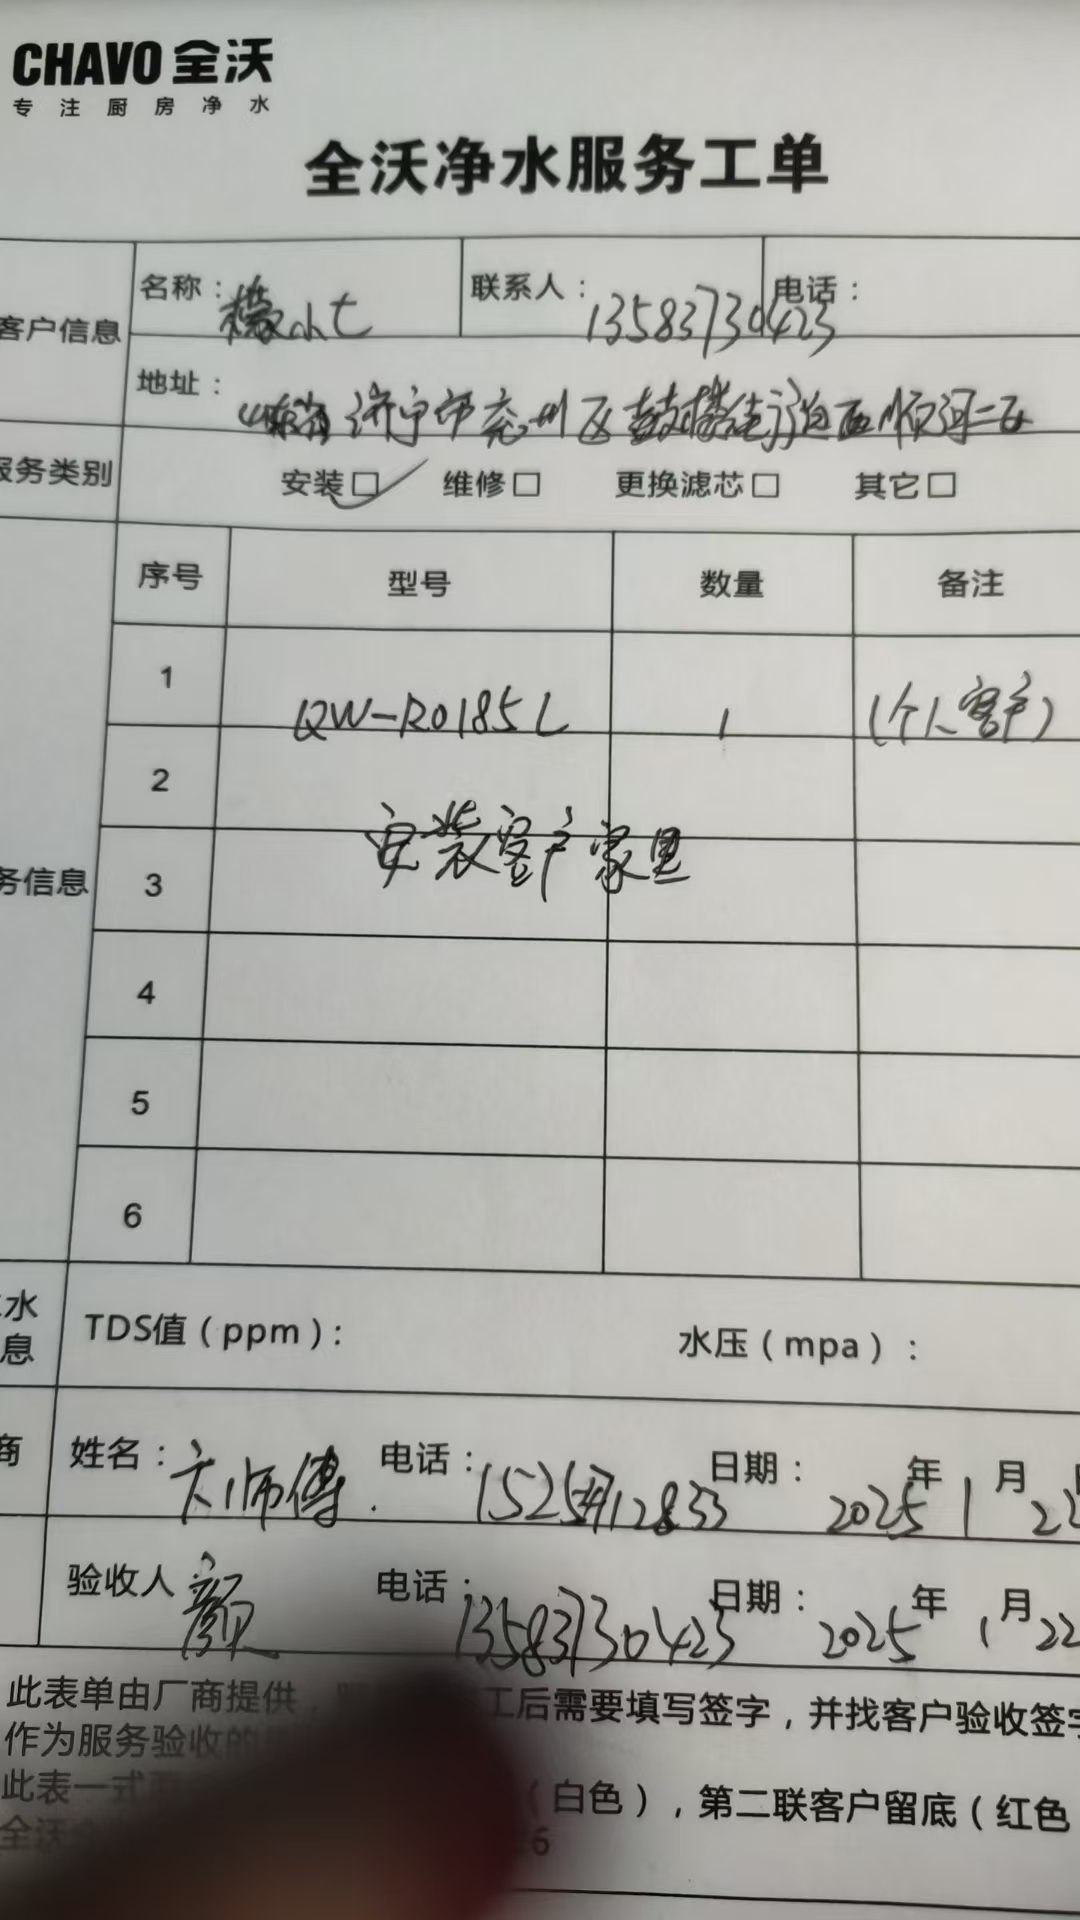 CHAVO 全沃
专注厨房净水
全沃净水服务工单
客户信息 名称： 联系人：13583730423 电话：
地址：山东省济宁市兖州区鼓楼街道西顺河二区
服务类别 安装□✓ 维修□ 更换滤芯□ 其它□
序号 型号 数量 备注
1 QW-R0185L 1 (个人客户)
2
安装客户家里
务信息 3
4
5
6
水
息 TDS值（ppm）： 水压（mpa）：
商 姓名：卞师傅. 电话： 日期：2025年1月22
验收人 颜 电话：13583730423 日期：2025年1月22
此表单由厂商提供， 工后需要填写签字，并找客户验收签字
作为服务验收的
此表一式 （白色），第二联客户留底（红色
全沃 6